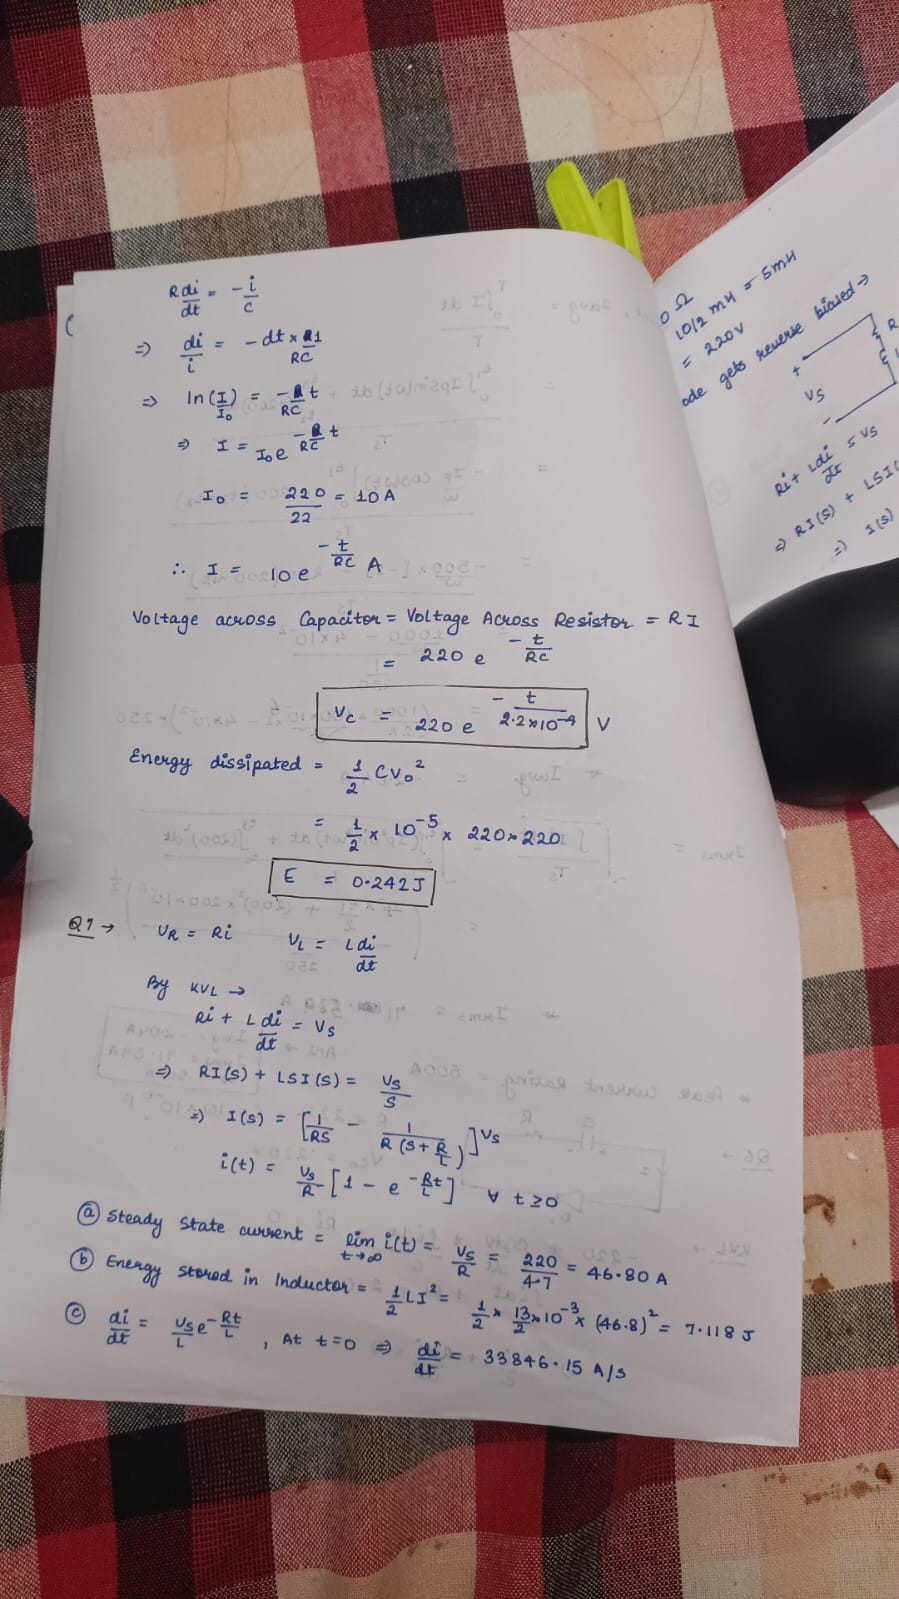 R di/dt = - i/c
⇒ di/i = - dt × 1/RC
⇒ ln(I/I₀) = - t/RC
⇒ I = I₀ e^(- t/RC)
I₀ = 220/22 = 10 A
∴ I = 10 e^(-t/RC) A
Voltage across Capacitor = Voltage Across Resistor = RI
= 220 e^(-t/RC)
Vc = 220 e^(-t/2.2×10⁻⁴) V
Energy dissipated = 1/2 CV₀²
= 1/2 × 10⁻⁵ × 220 × 220
E = 0.242J
Q7 → VR = Ri VL = L di/dt
By KVL →
Ri + L di/dt = Vs
⇒ RI(s) + LSI(s) = Vs/S
⇒ I(s) = [1/RS - 1/R(S + R/L)] Vs
i(t) = Vs/R [1 - e^(-Rt/L)] ∀ t ≥ 0
ⓐ Steady State current = lim t→∞ i(t) = Vs/R = 220/4.7 = 46.80 A
ⓑ Energy Stored in Inductor = 1/2 LI² = 1/2 × 13/2 × 10⁻³ × (46.8)² = 7.118 J
ⓒ di/dt = Vs/L e^(-Rt/L), At t=0 ⇒ di/dt = 33846.15 A/s
0 Ω
10/2 mH = 5mH
= 220V
ode gets reverse biased →
+ Vs - R
Ri + L di/dt = Vs
⇒ RI(s) + LSI(
⇒ I(s)